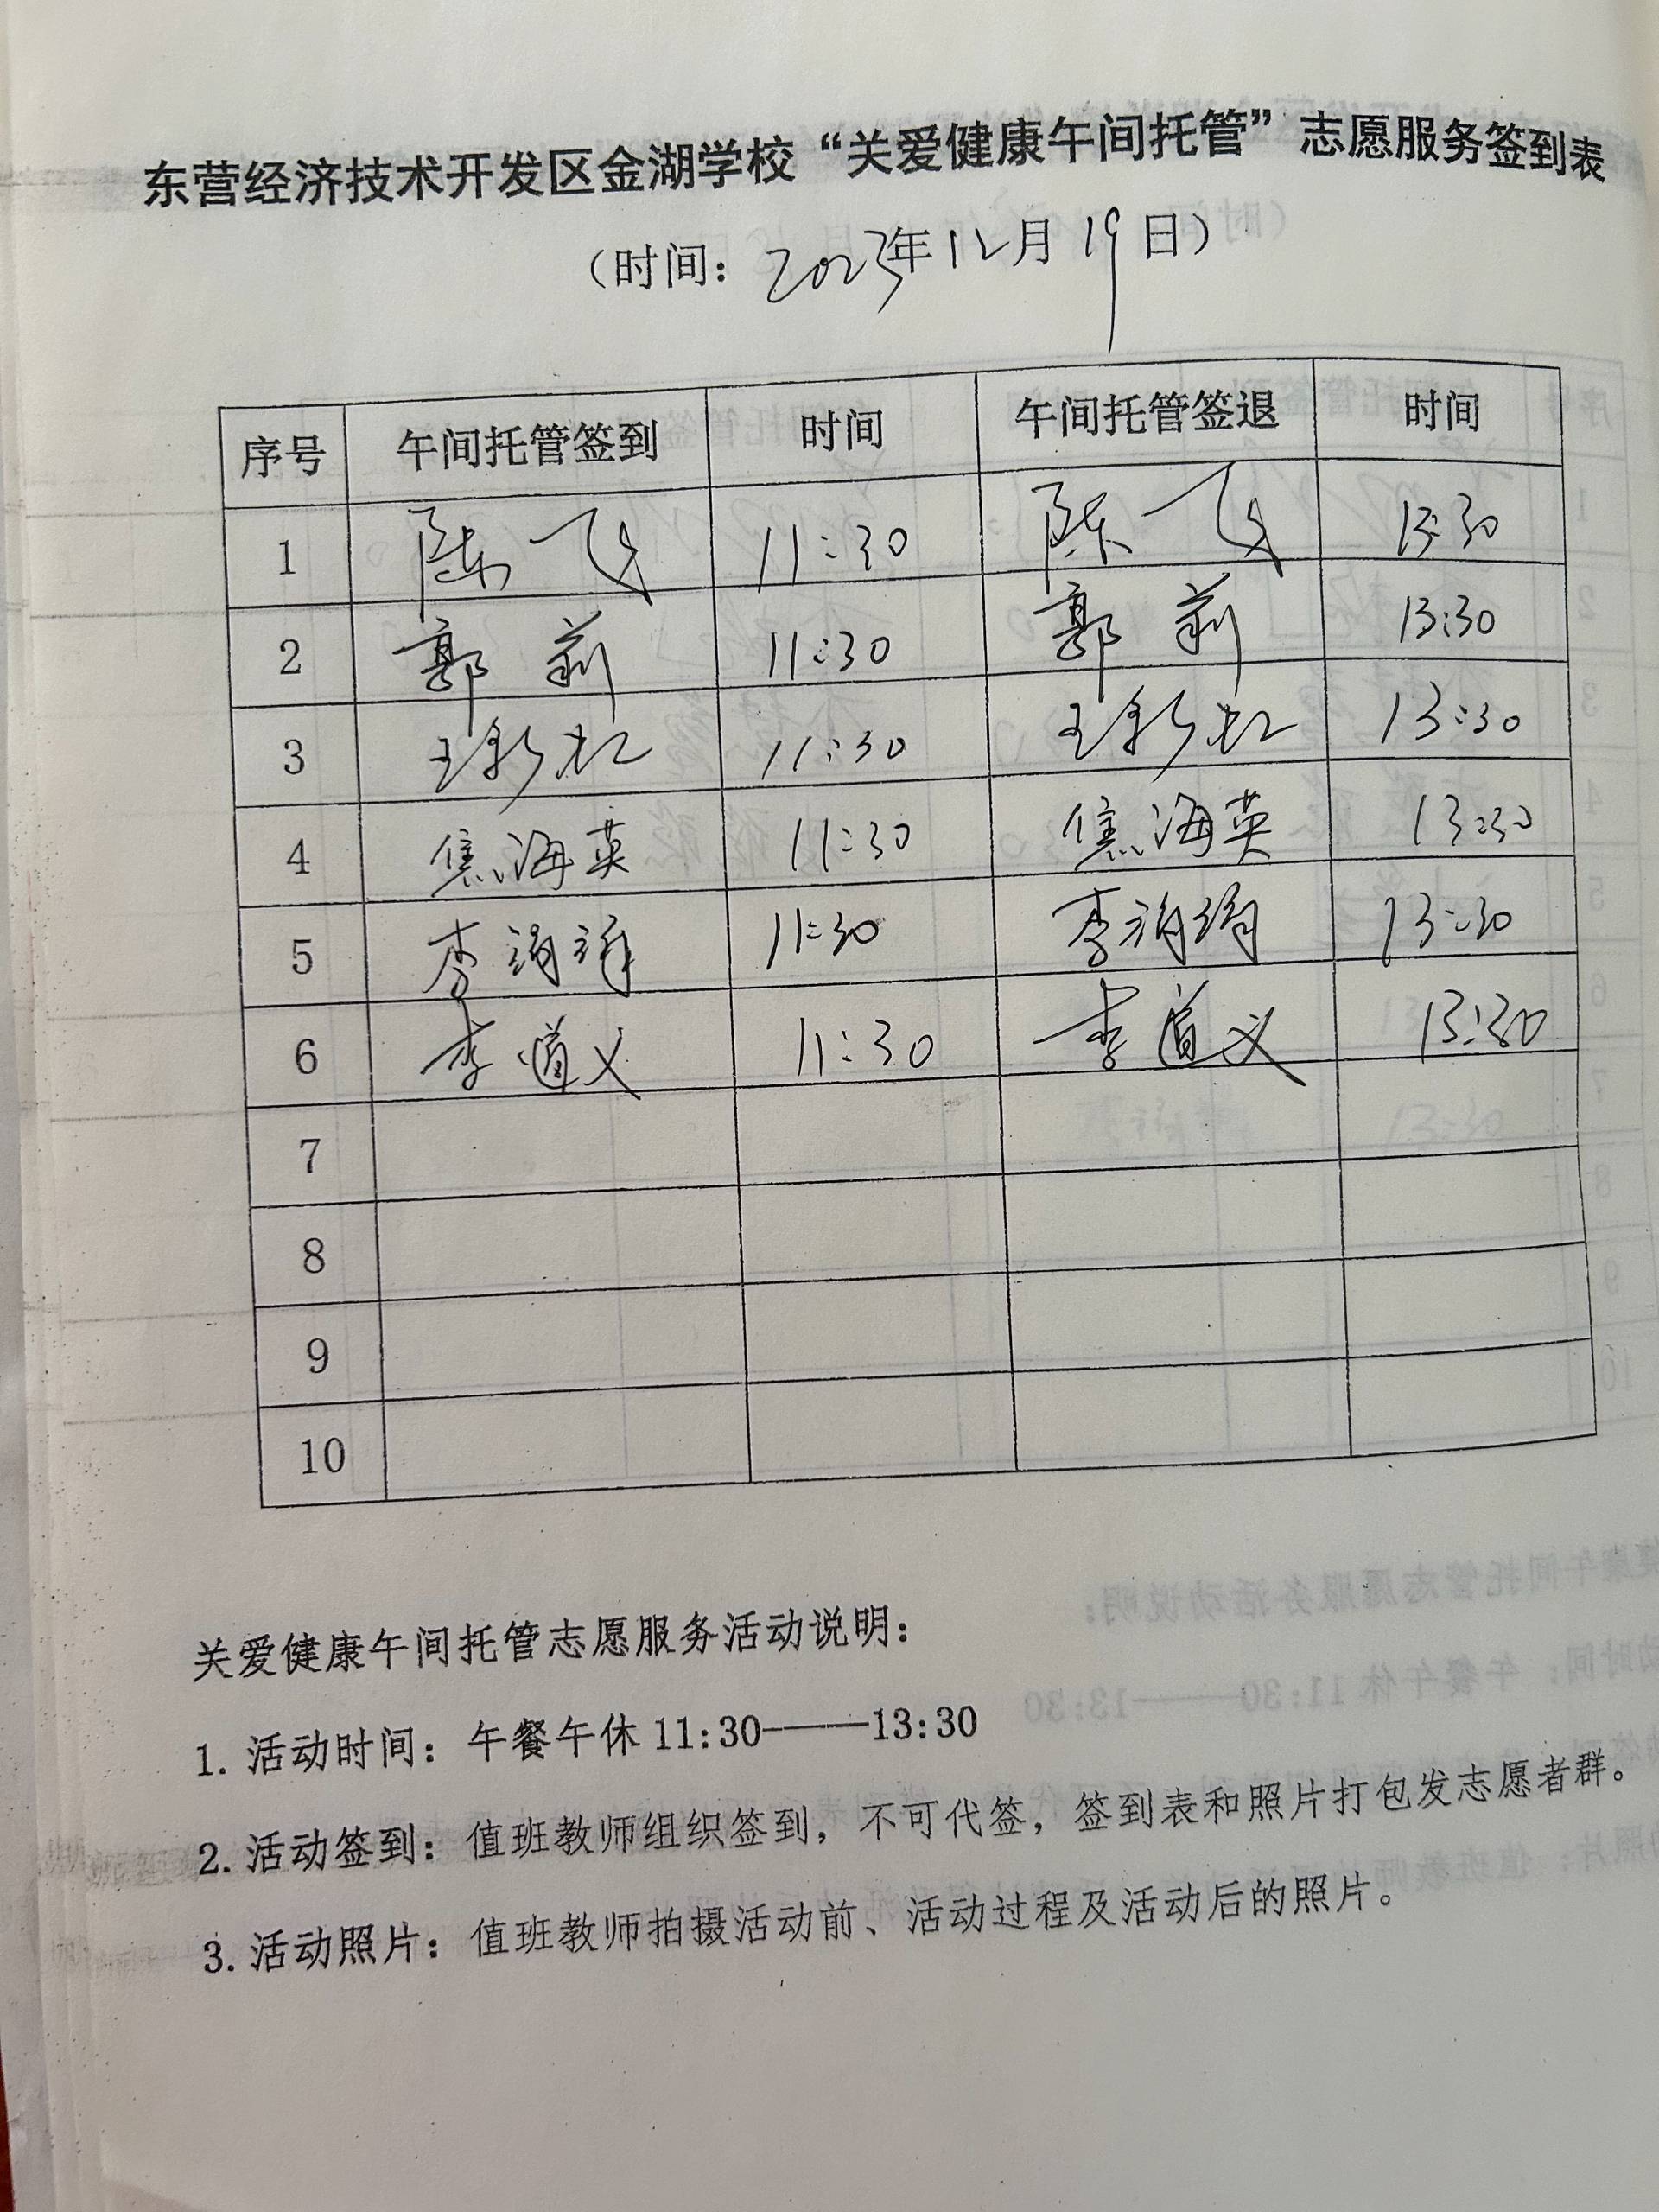 东营经济技术开发区金湖学校“关爱健康午间托管”志愿服务签到表
（时间：2023年12月19日）
序号 午间托管签到 时间 午间托管签退 时间
1 陈飞 11:30 陈飞 13:30
2 郭莉 11:30 郭莉 13:30
3 王彩虹 11:30 王彩虹 13:30
4 焦海英 11:30 焦海英 13:30
5 李 11:30 李 13:30
6 李道义 11:30 李道义 13:30
7
8
9
10
关爱健康午间托管志愿服务活动说明：
1. 活动时间：午餐午休 11:30———13:30
2. 活动签到：值班教师组织签到，不可代签，签到表和照片打包发志愿者群。
3. 活动照片：值班教师拍摄活动前、活动过程及活动后的照片。